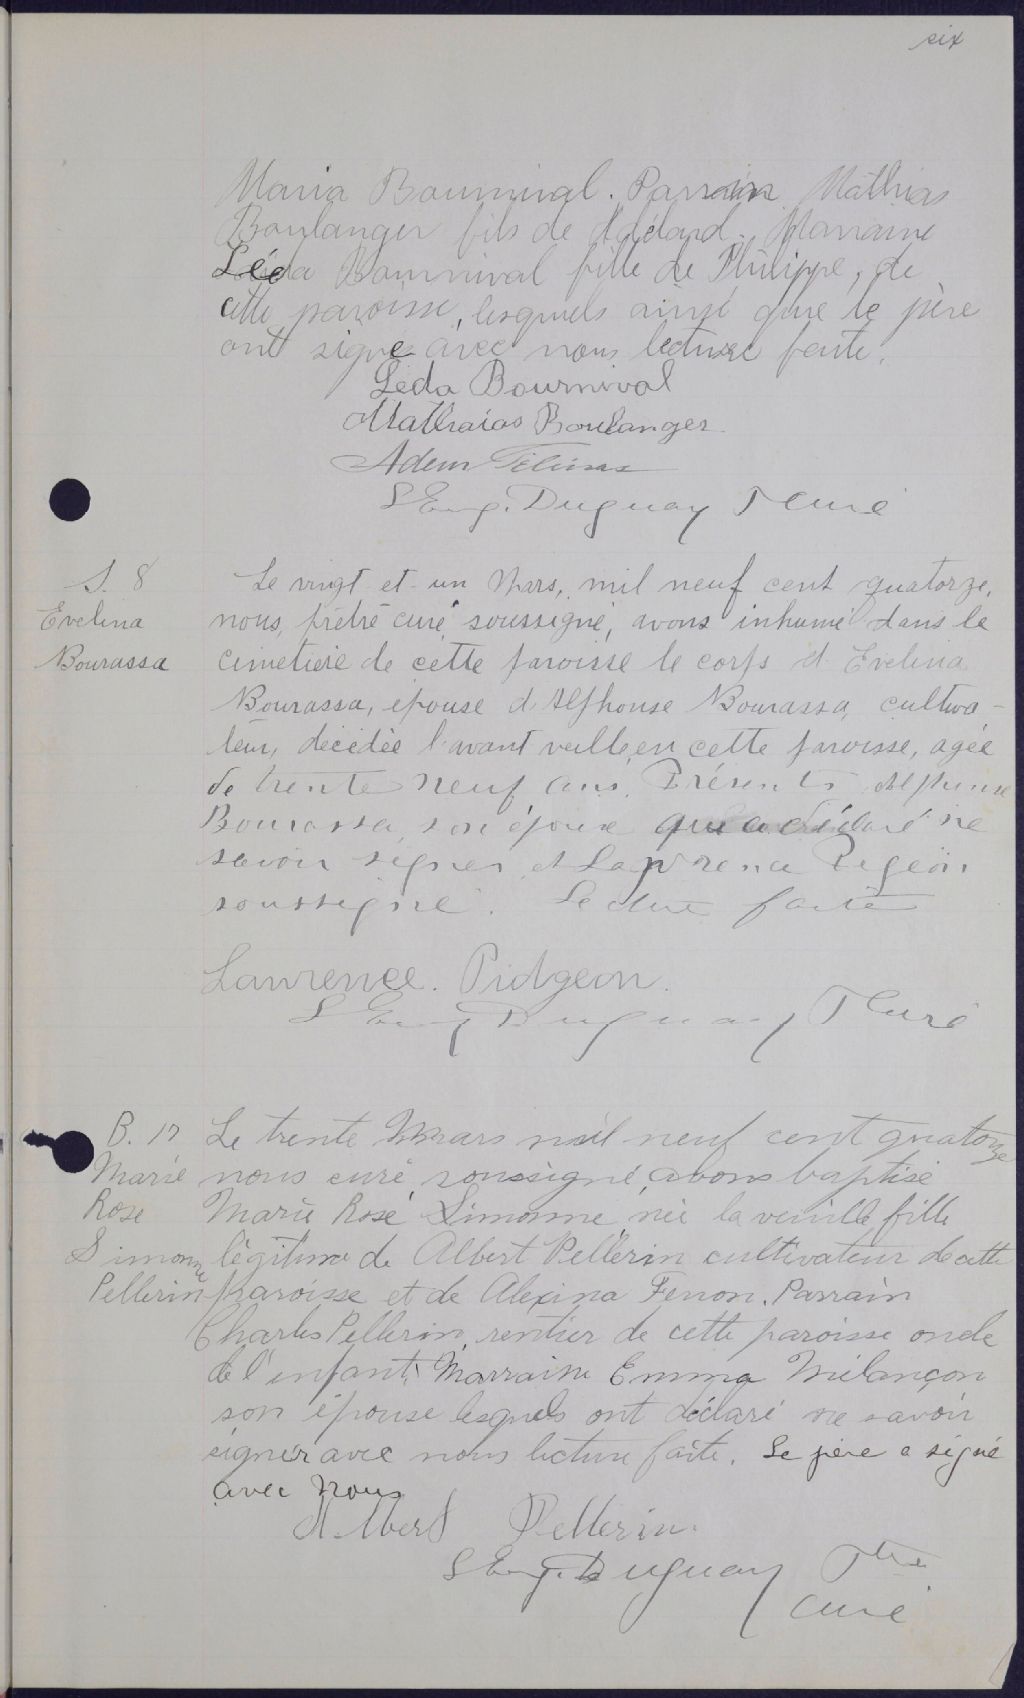 six
Maria Bournival. Parrain Mathias
Boulanger fils de Médard. Marraine
Léda Bournival fille de Philippe, de
cette paroisse, lesquels ainsi que le père
ont signé avec nous lecture faite.
Léda Bournival
Mathaias Boulanger
Adem
S Eug. Duguay Ptre Curé
S. 8
Evelina
Bourassa
Le vingt et un Mars, mil neuf cent quatorze,
nous, prêtre curé soussigné, avons inhumé dans le
cimetière de cette paroisse le corps d'Evelina
Bourassa, épouse d'Alphonse Bourassa, cultiva-
teur, décédée l'avant veille en cette paroisse, agée
de trente neuf ans. Présents Alphonse
Bourassa son époux qui a déclaré ne
savoir signer et Lawrence Pigeon
soussigné. Lecture faite
Lawrence. Pidgeon.
S Eug Duguay Ptre Curé
B. 17
Marie
Rose
Simonne
Pellerin
Le trente Mars mil neuf cent quatorze
nous curé soussigné avons baptisé
Marie Rose Simonne née la veille fille
légitime de Albert Pellerin cultivateur de cette
paroisse et de Alexina Ferron. Parrain
Charles Pellerin, rentier de cette paroisse oncle
de l'enfant; Marraine Emma Milançon
son épouse lesquels ont déclaré ne savoir
signer avec nous lecture faite. Le père a signé
avec nous
Albert Pellerin.
S Eug. Duguay Ptre
curé